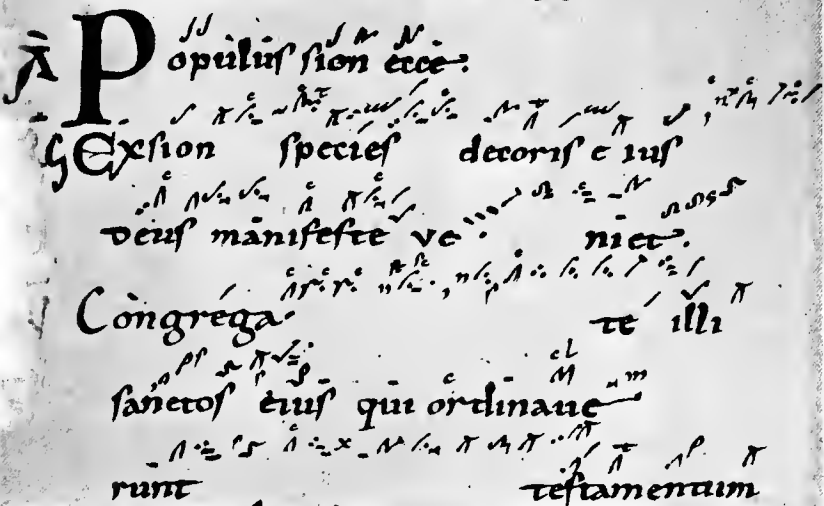 A Populus sion ecce.
G Ex sion species decoris e ius
deus manifeste ve niet.
V Congrega te illi
sanctos eius qui ordinave
runt testamentum